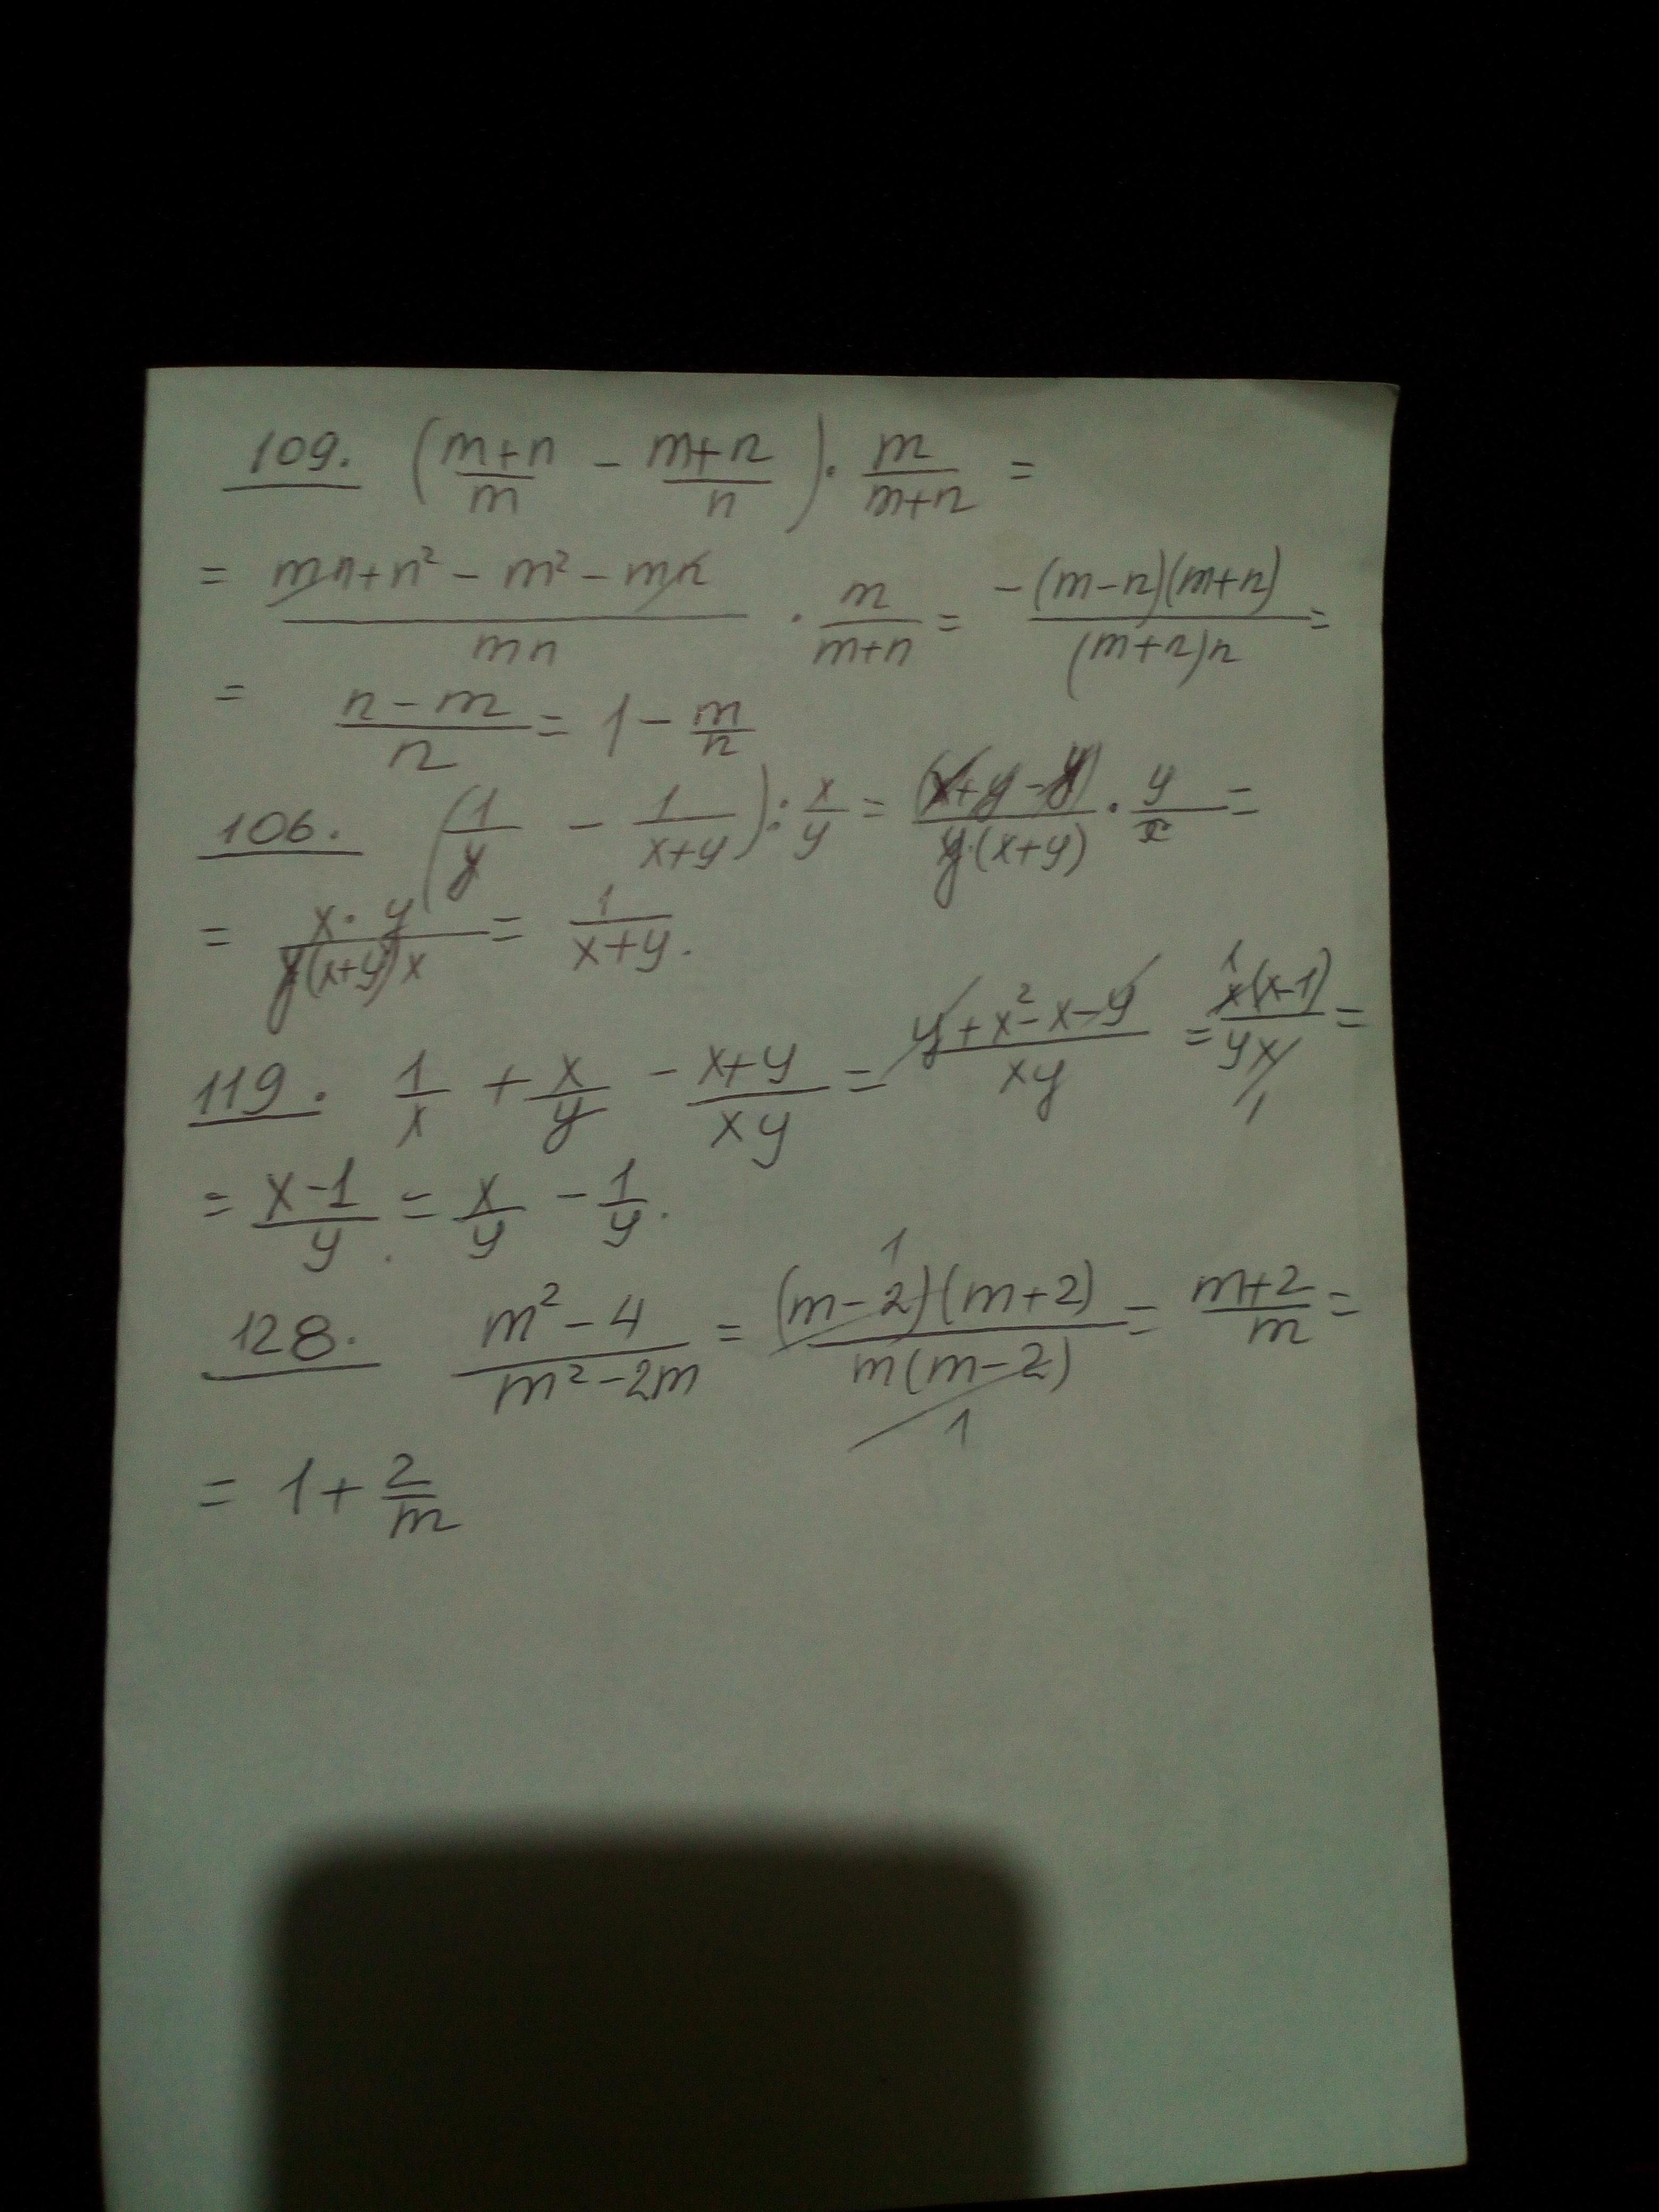 109. ((m+n)/m - (m+n)/n) · m/(m+n) =
= (mn+n² - m² - mn)/(mn) · m/(m+n) = -(m-n)(m+n)/((m+n)n) =
= (n-m)/n = 1 - m/n
106. (1/y - 1/(x+y)) : x/y = (x+y-y)/(y·(x+y)) · y/x =
= (x·y)/(y(x+y)x) = 1/(x+y).
119. 1/x + x/y - (x+y)/(xy) = (y+x²-x-y)/(xy) = x(x-1)/(yx) = 1 1
= (x-1)/y = x/y - 1/y.
128. (m²-4)/(m²-2m) = (m-2)(m+2)/(m(m-2)) = (m+2)/m = 1 1
= 1 + 2/m